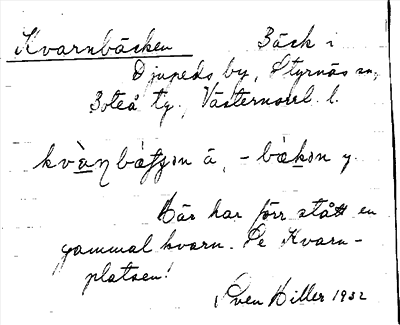 Kvarnbäcken Bäck i
Djupeds by, Styrnäs sn,
Boteå tg., Västernorrl. l.
kvàŋbæʃʃən ä, - bækən y
Här har förr stått en
gammal kvarn. Se Kvarn-
platsen!
Sven Hiller 1932